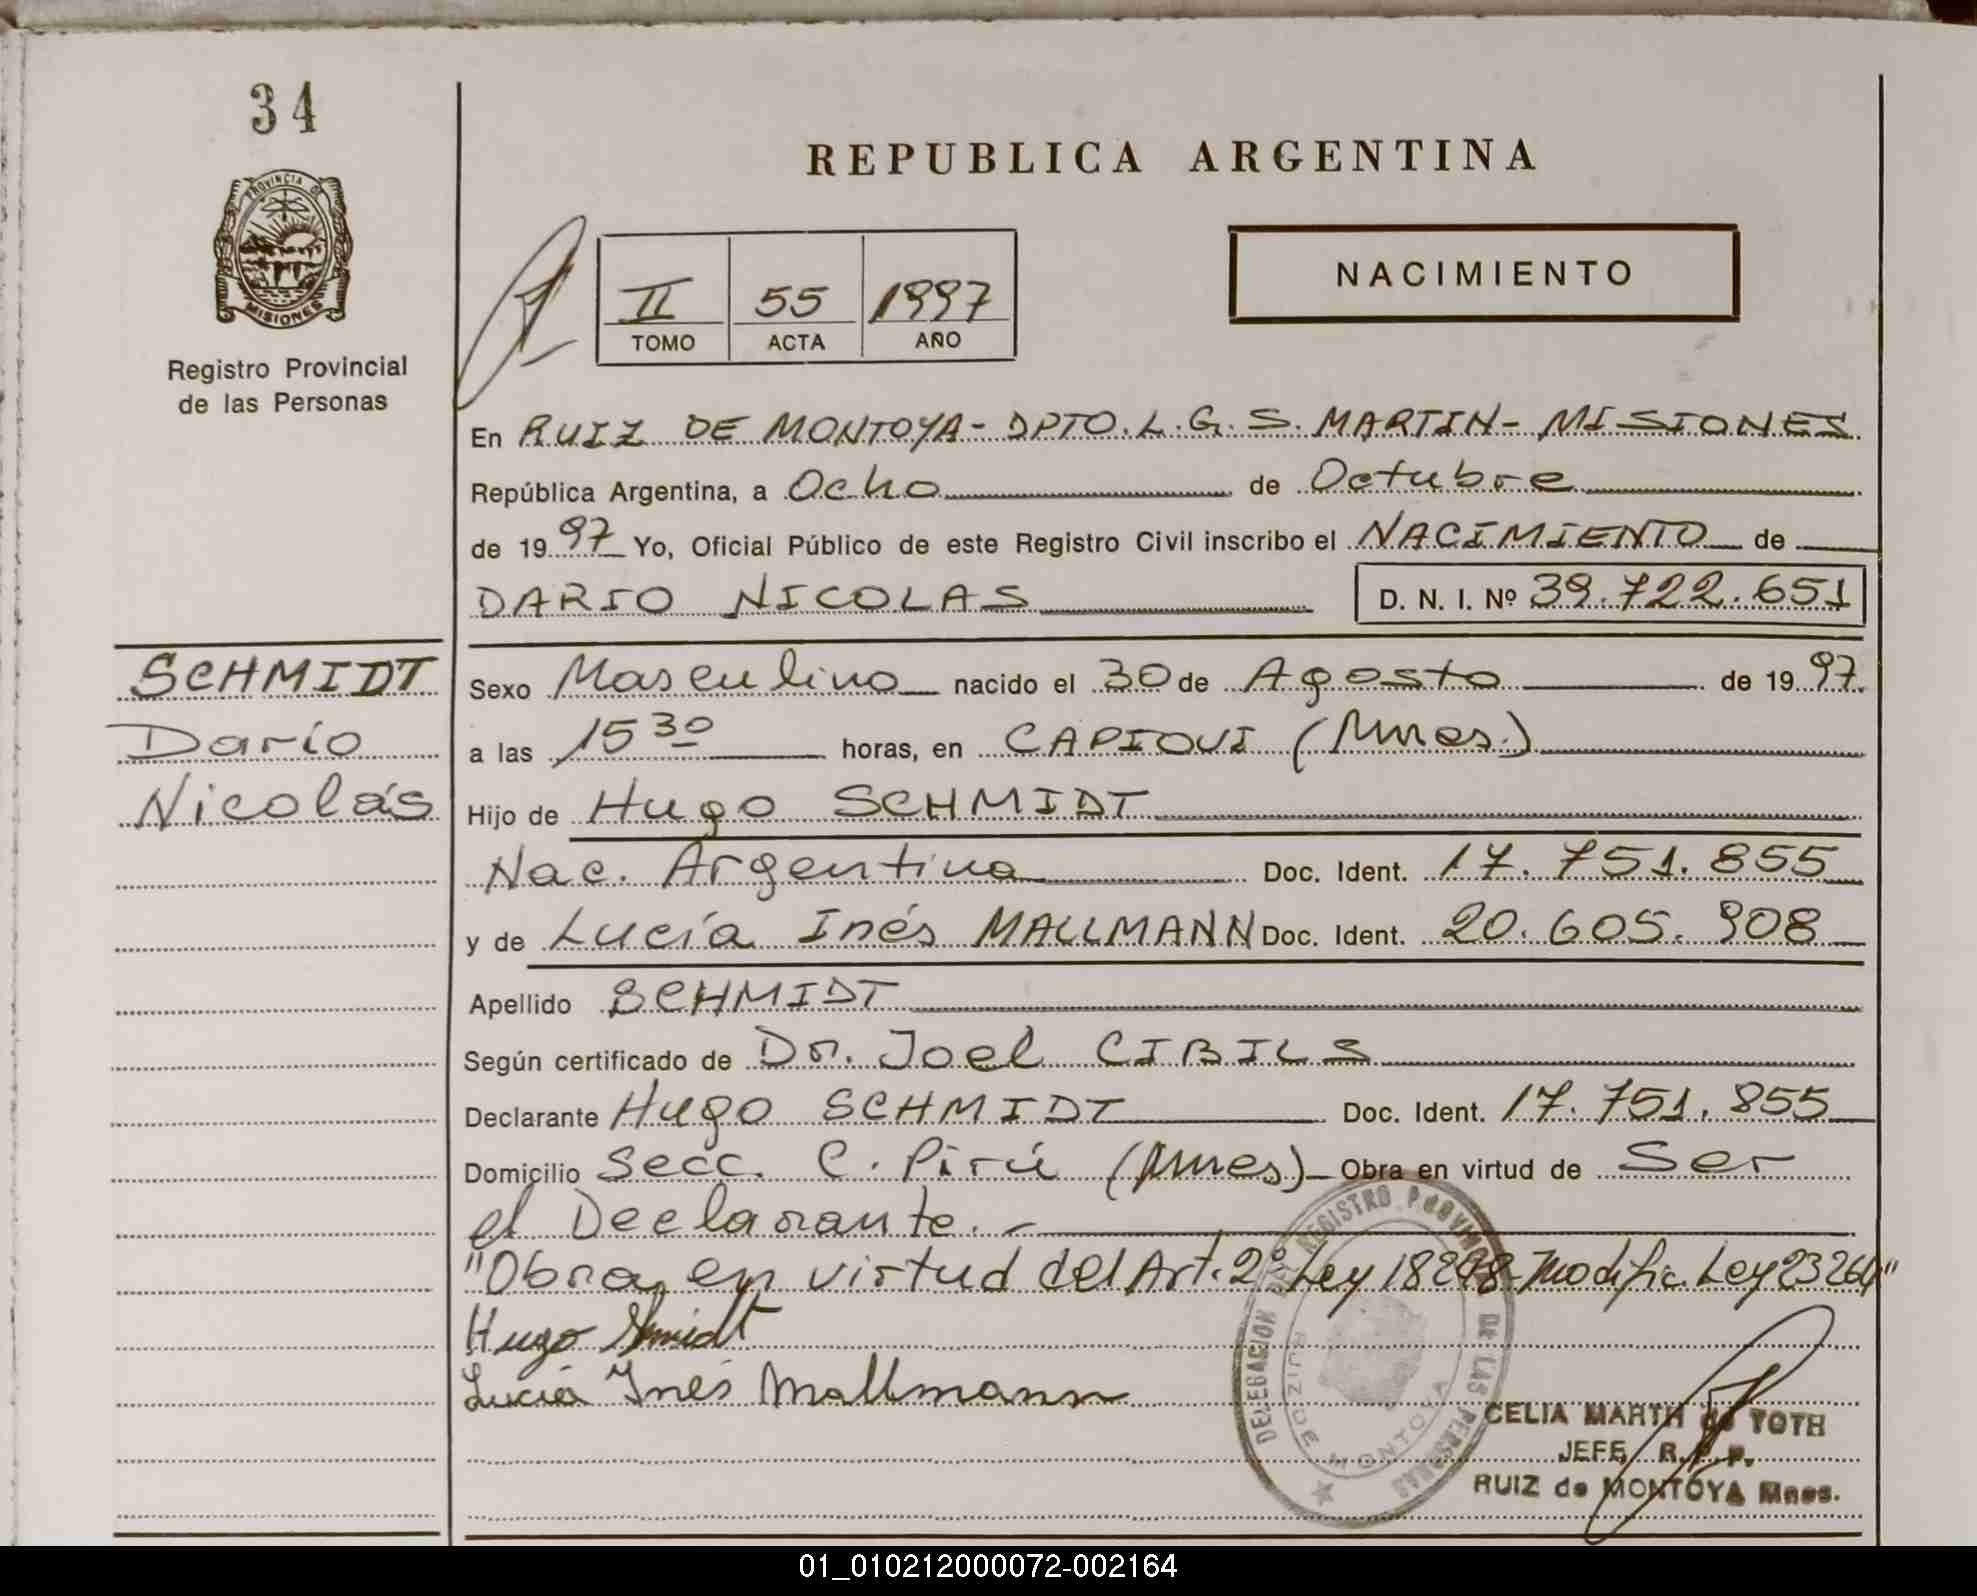 34
REPUBLICA ARGENTINA
PROVINCIA DE
MISIONES
Registro Provincial
de las Personas
II 55 1997
TOMO ACTA AÑO
NACIMIENTO
En RUIZ DE MONTOYA - DPTO. L. G. S. MARTIN - MISIONES
República Argentina, a Ocho de Octubre
de 1997 Yo, Oficial Público de este Registro Civil inscribo el NACIMIENTO de
DARIO NICOLAS D. N. I. Nº 39.722.651
SCHMIDT
Darío
Nicolás
Sexo Masculino nacido el 30 de Agosto de 1997.
a las 15 30 horas, en CAPIOVI (Mnes.)
Hijo de Hugo SCHMIDT
Nac. Argentina Doc. Ident. 17.751.855
y de Lucía Inés MALLMANN Doc. Ident. 20.605.908
Apellido SCHMIDT
Según certificado de Dr. Joel CIBILS
Declarante Hugo SCHMIDT Doc. Ident. 17.751.855
Domicilio Secc. C. Pirú (Mnes) Obra en virtud de Ser
el Declarante.-
"Obra en virtud del Art. 2º Ley 18248 - Modific. Ley 23264"
Hugo Shmidt
Lucia Inés Mallmann
DELEGACION DEL REGISTRO PROVINCIAL DE LAS PERSONAS
RUIZ DE MONTOYA
CELIA MARTA de TOTH
JEFE R. P. P.
RUIZ de MONTOYA Mnes.
01_010212000072-002164